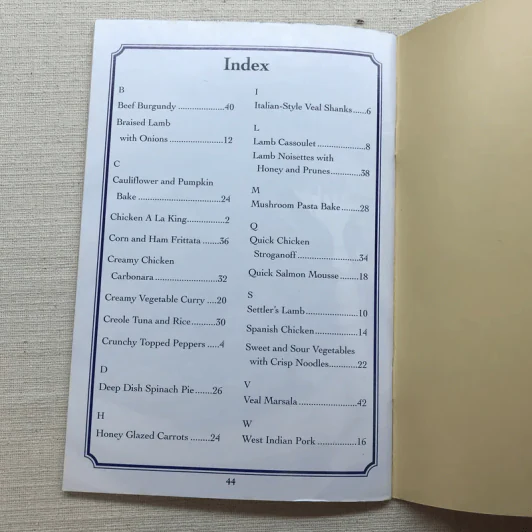 Index
B
Beef Burgundy ....................40
Braised Lamb
with Onions ........................12
C
Cauliflower and Pumpkin
Bake ....................................24
Chicken A La King................2
Corn and Ham Frittata .......36
Creamy Chicken
Carbonara ...........................32
Creamy Vegetable Curry ....20
Creole Tuna and Rice..........30
Crunchy Topped Peppers .....4
D
Deep Dish Spinach Pie.......26
H
Honey Glazed Carrots ........24
I
Italian-Style Veal Shanks.....6
L
Lamb Cassoulet ....................8
Lamb Noisettes with
Honey and Prunes.............38
M
Mushroom Pasta Bake........28
Q
Quick Chicken
Stroganoff ..........................34
Quick Salmon Mousse ........18
S
Settler's Lamb .....................10
Spanish Chicken..................14
Sweet and Sour Vegetables
with Crisp Noodles............22
V
Veal Marsala ........................42
W
West Indian Pork ................16
44